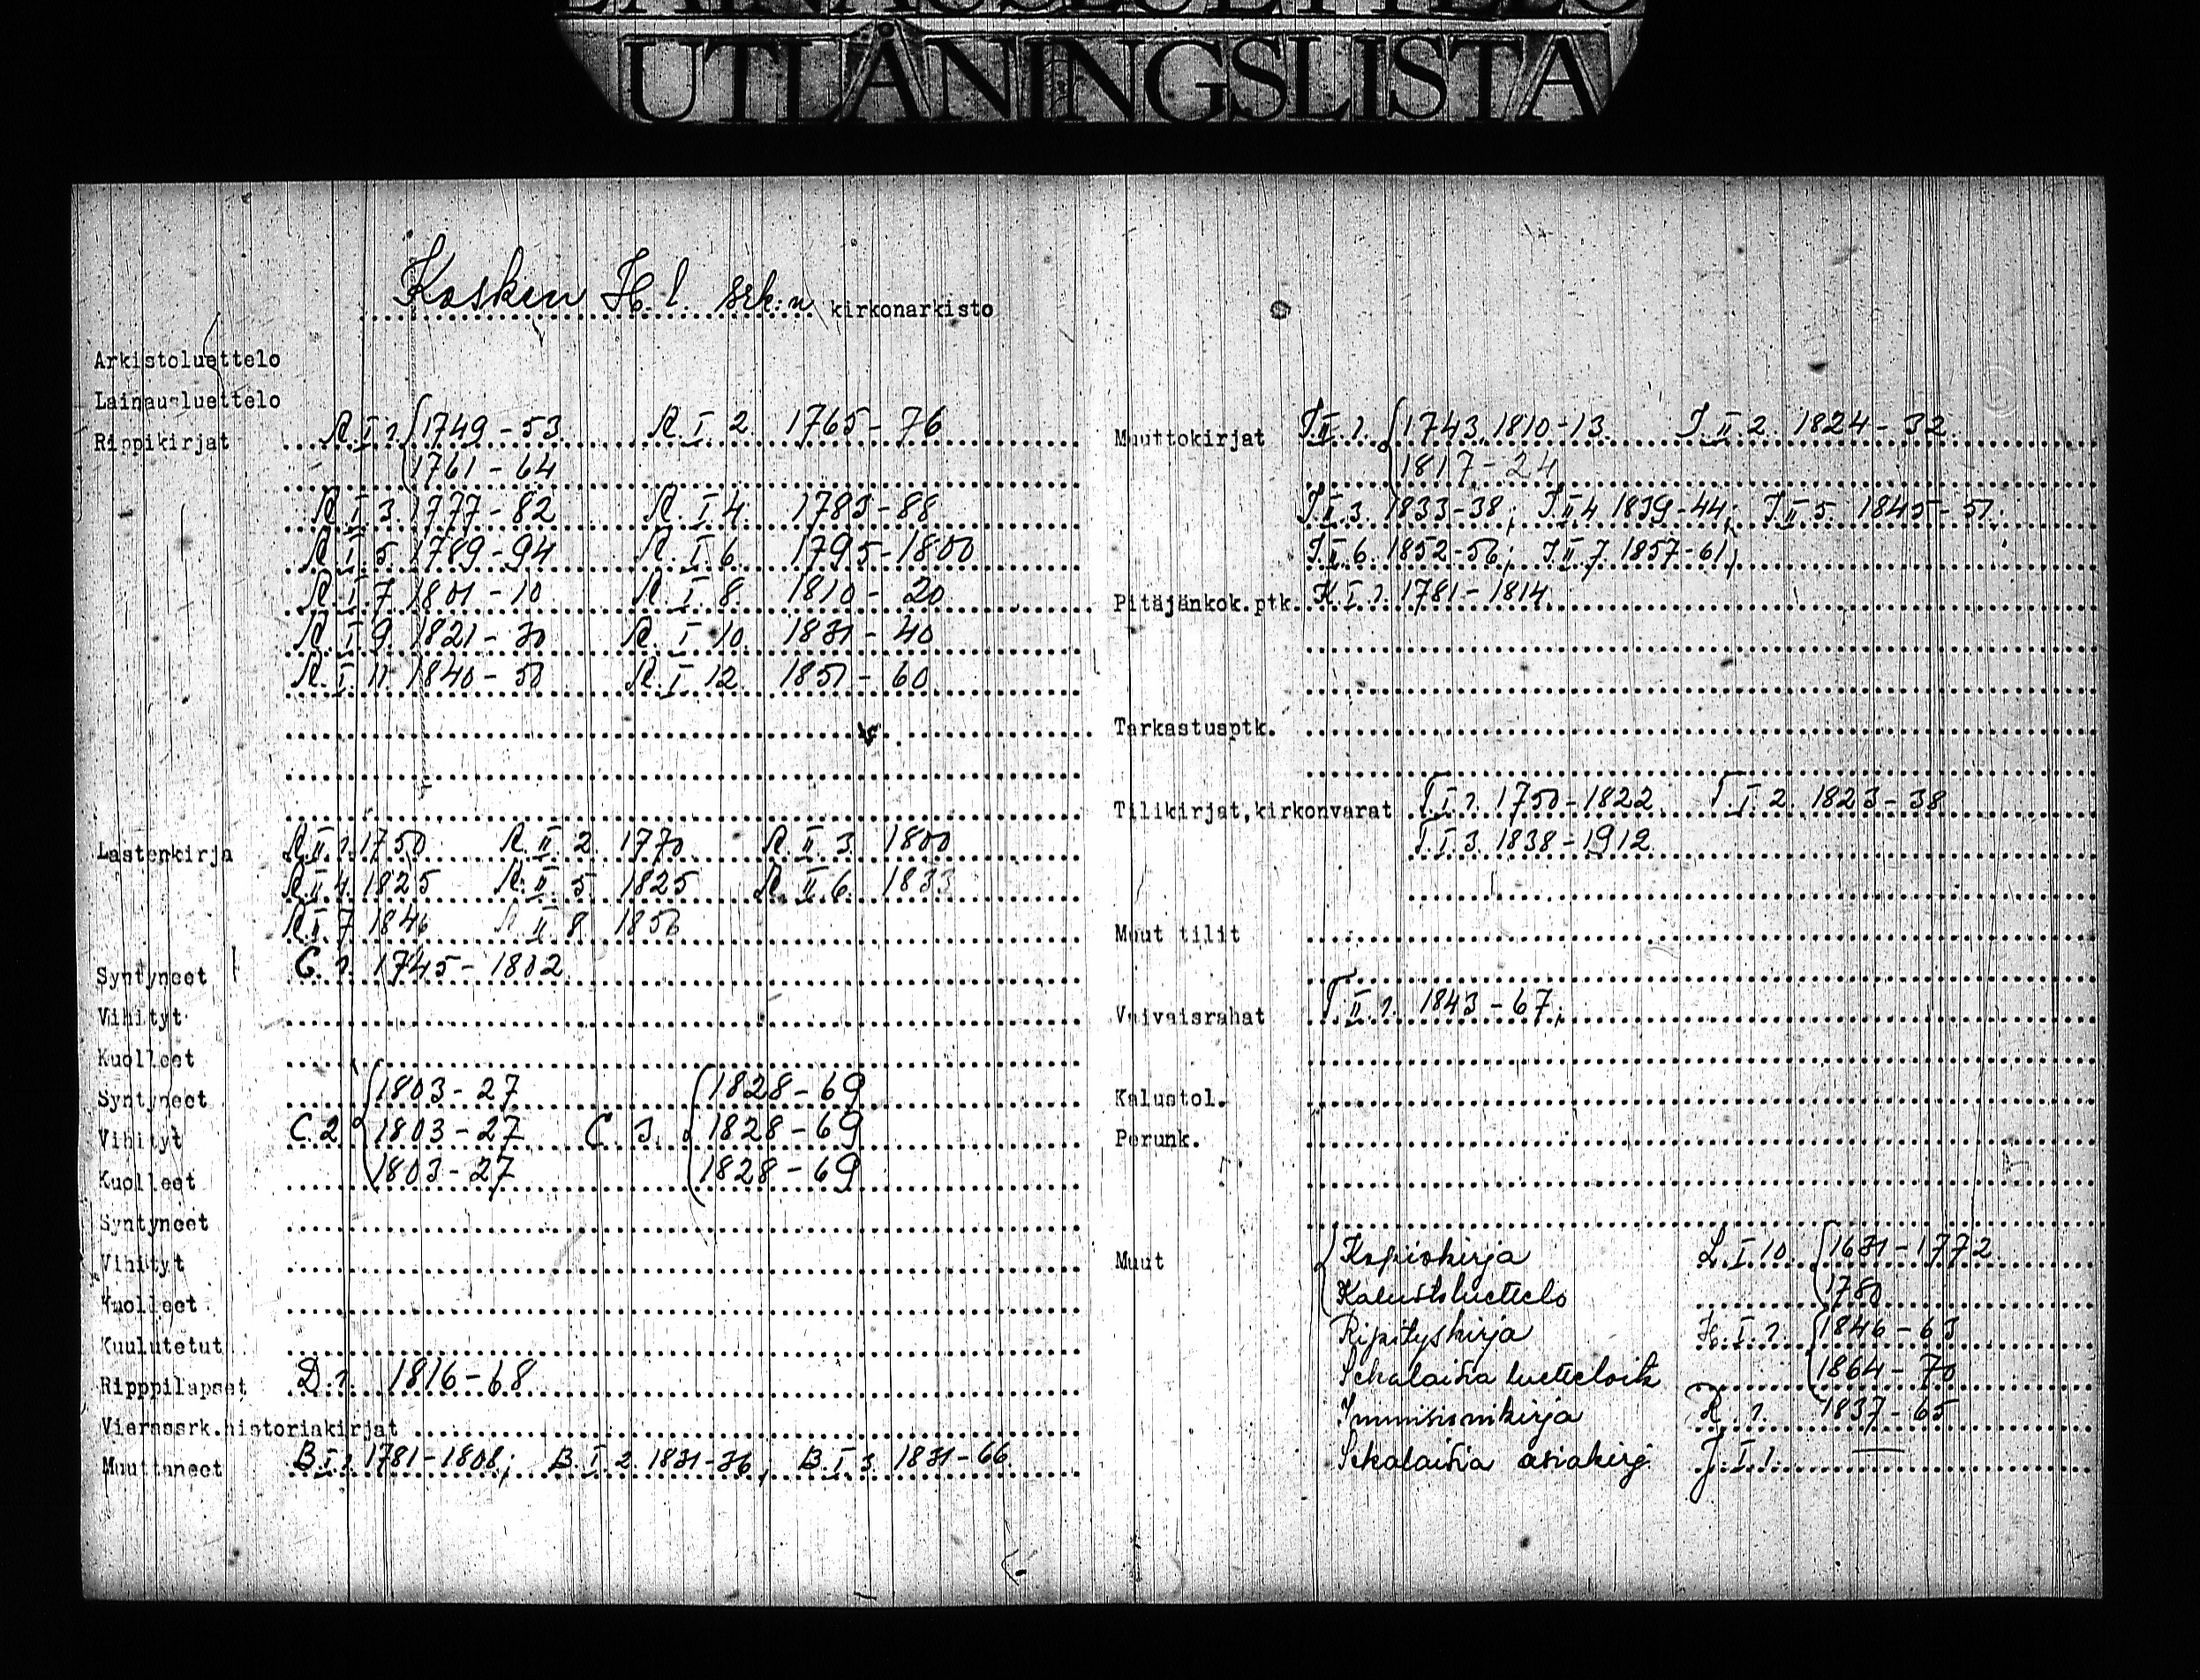 LAINAUSLUETTELO
UTLÅNINGSLISTA
Kosken H. l. srk:n kirkonarkisto
Arkistoluettelo
Lainausluettelo
Rippikirjat R. I 1. 1749-53 R. I 2. 1765-76
1761-64
R. I 3. 1777-82 R. I 4. 1783-88
R. I 5 1789-94 R. I 6. 1795-1800
R. I 7 1801-10 R. I 8. 1810-20
R. I 9 1821-30 R. I 10 1831-40
R. I 11. 1840-50 R. I 12. 1851-60
Lastenkirja R. II 1. 1750 R. II 2. 1770. R. II 3. 1800
R. II 4. 1825 R. II 5. 1825 R. II 6. 1833
R. II 7 1846 R II 8. 1856
Syntyneet C. 1. 1745-1802
Vihityt
Kuolleet
Syntyneet 1803-27 1828-69
Vihityt C. 2. 1803-27 C. 3. 1828-69
Kuolleet 1803-27 1828-69
Syntyneet
Vihityt
Kuolleet
Kuulutetut
Ripppilapset D. 1. 1816-68
Vierassrk.historiakirjat
Muuttaneet B. I 1. 1781-1808; B. I. 2. 1831-36; B. I. 3. 1831-66
Muuttokirjat I II. 1. 1743, 1810-13. I. II. 2. 1824-32.
1817-24
I II. 3. 1833-38; I. II 4 1839-44; I II. 5. 1845-51.
I II 6. 1852-56; I II 7. 1857-61;
Pitäjänkok.ptk. K I 1. 1781-1814
Tarkastusptk.
Tilikirjat,kirkonvarat T. I 1. 1750-1822. T. I. 2. 1823-38
T. I 3. 1838-1912.
Muut tilit
Vaivaisrahat T. II 1. 1843-67;
Kalustol.
Perunk.
Muut Kopiokirja L. I 10. 1631-1772
Kalustoluettelo 1780
Ripityskirja H. I. 1. 1846-63
Sekalaisia luetteloita 1864-70
Immisionikirja R. 1. 1837-65
Sekalaisia asiakirj. J. I 1. —